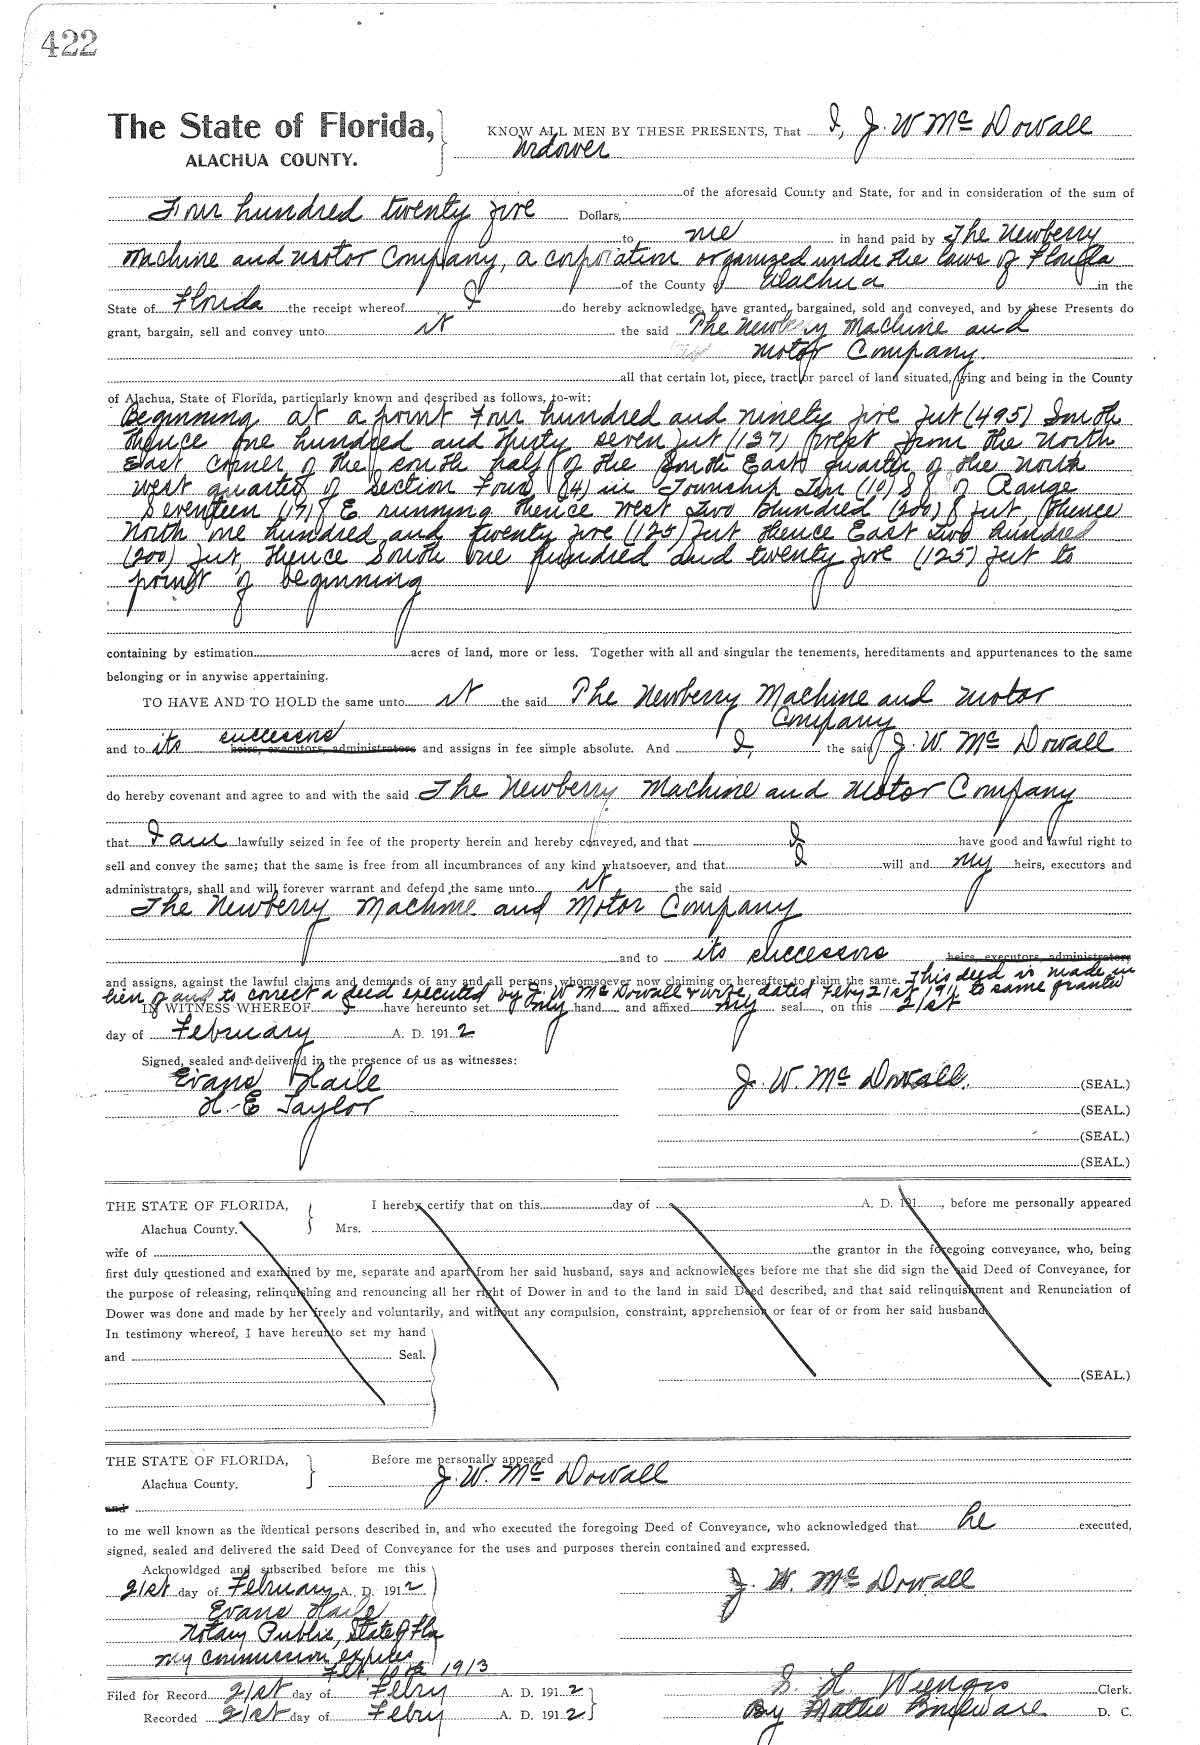 422
The State of Florida,
ALACHUA COUNTY.
KNOW ALL MEN BY THESE PRESENTS, That I, J. W McDowall
widower
of the aforesaid County and State, for and in consideration of the sum of
Four hundred twenty five Dollars,
to me in hand paid by The Newberry
Machine and Motor Company, a corporation organized under the laws of Florida
of the County of Alachua in the
State of Florida the receipt whereof I do hereby acknowledge, have granted, bargained, sold and conveyed, and by these Presents do
grant, bargain, sell and convey unto it the said The Newberry Machine and
Motor Company.
all that certain lot, piece, tract or parcel of land situated, lying and being in the County
of Alachua, State of Florida, particularly known and described as follows, to-wit:
Beginning at a point Four hundred and ninety five feet (495) South
thence one hundred and thirty seven feet (137) West from the North
East corner of the south half of the South East quarter of the North
West quarter of Section Four (4) in Township Ten (10) S of Range
Seventeen (17) E running thence West Two Hundred (200) feet, thence
North one hundred and twenty five (125) feet thence East two hundred
(200) feet, thence South one hundred and twenty five (125) feet to
point of beginning
containing by estimation acres of land, more or less. Together with all and singular the tenements, hereditaments and appurtenances to the same
belonging or in anywise appertaining.
TO HAVE AND TO HOLD the same unto it the said The Newberry Machine and Motor
Company
and to its successors heirs, executors, administrators and assigns in fee simple absolute. And I, the said J. W. McDowall
do hereby covenant and agree to and with the said The Newberry Machine and Motor Company
that I am lawfully seized in fee of the property herein and hereby conveyed, and that I have good and lawful right to
sell and convey the same; that the same is free from all incumbrances of any kind whatsoever, and that I will and my heirs, executors and
administrators, shall and will forever warrant and defend the same unto it the said
The Newberry Machine and Motor Company
and to its successors heirs, executors, administrators
and assigns, against the lawful claims and demands of any and all persons whomsoever now claiming or hereafter to claim the same. This deed is made in
lieu of and to correct a deed executed by J. W McDowall & wife, dated Feby 21st 1911 to same grantee
IN WITNESS WHEREOF I have hereunto set my hand and affixed my seal, on this 21st
day of February A. D. 1912
Signed, sealed and delivered in the presence of us as witnesses:
Evans Haile J. W. McDowall. (SEAL.)
H. E Taylor (SEAL.)
(SEAL.)
(SEAL.)
THE STATE OF FLORIDA,
Alachua County.
I hereby certify that on this day of A. D. 191 , before me personally appeared
Mrs.
wife of the grantor in the foregoing conveyance, who, being
first duly questioned and examined by me, separate and apart from her said husband, says and acknowledges before me that she did sign the said Deed of Conveyance, for
the purpose of releasing, relinquishing and renouncing all her right of Dower in and to the land in said Deed described, and that said relinquishment and Renunciation of
Dower was done and made by her freely and voluntarily, and without any compulsion, constraint, apprehension or fear of or from her said husband.
In testimony whereof, I have hereunto set my hand
and Seal.
(SEAL.)
THE STATE OF FLORIDA,
Alachua County.
Before me personally appeared
J. W. McDowall
and
to me well known as the identical persons described in, and who executed the foregoing Deed of Conveyance, who acknowledged that he executed,
signed, sealed and delivered the said Deed of Conveyance for the uses and purposes therein contained and expressed.
Acknowldged and subscribed before me this
21st day of February A. D. 1912 J. W. McDowall
Evans Haile
Notary Public, State of Fla
My commission expires
Feb. 10th 1913
Filed for Record 21st day of Febry A. D. 1912 S. H. Wienges Clerk.
Recorded 21st day of Febry A. D. 1912 By Mattie D. C.